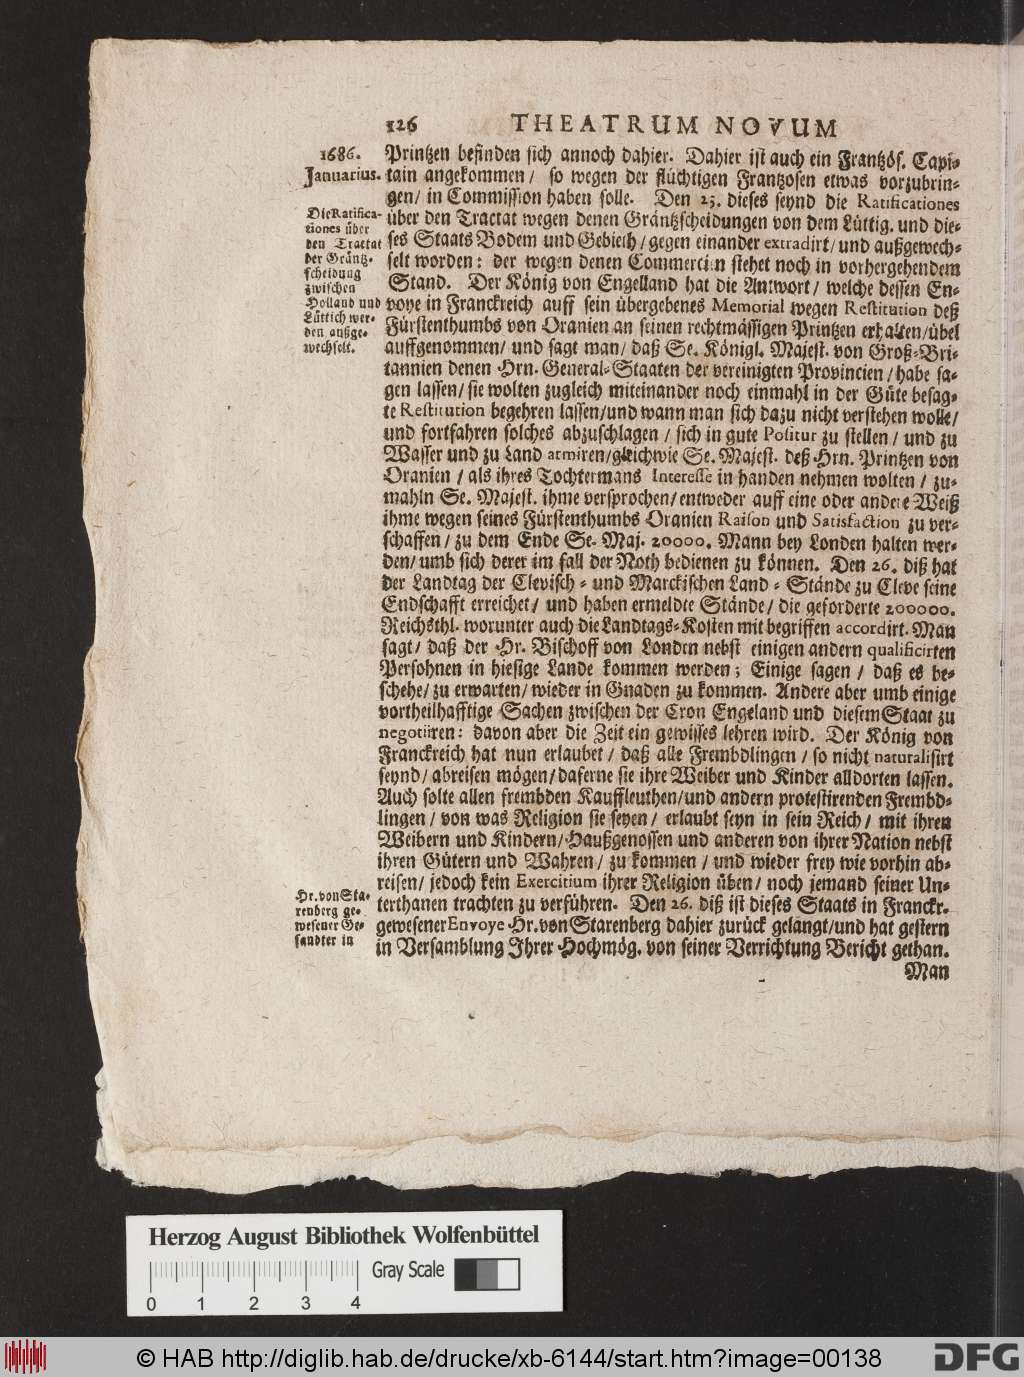 126 THEATRUM NOVUM
1686.
Januarius.
Die Ratifica-
tiones über
den Tractat
der Gräntz-
scheidung
zwischen
Holland und
Lüttich wer-
den außge-
wechselt.
Printzen befinden sich annoch dahier. Dahier ist auch ein Frantzös. Capi-
tain angekommen / so wegen der flüchtigen Frantzosen etwas vorzubrin-
gen / in Commission haben solle. Den 25. dieses seynd die Ratificationes
über den Tractat wegen denen Gräntzscheidungen von dem Lüttig. und die-
ses Staats Bodem und Gebieth / gegen einander extradirt / und außgewech-
selt worden: der wegen denen Commercien stehet noch in vorhergehendem
Stand. Der König von Engelland hat die Antwort / welche dessen En-
voye in Franckreich auff sein übergebenes Memorial wegen Restitution deß
Fürstenthumbs von Oranien an seinen rechtmässigen Printzen erhalten / übel
auffgenommen / und sagt man / daß Se. Königl. Majest. von Groß-Bri-
tannien denen Hrn. General-Staaten der vereinigten Provincien / habe sa-
gen lassen / sie wolten zugleich miteinander noch einmahl in der Güte besag-
te Restitution begehren lassen / und wann man sich dazu nicht verstehen wolle /
und fortfahren solches abzuschlagen / sich in gute Positur zu stellen / und zu
Wasser und zu Land armiren / gleichwie Se. Majest. deß Hrn. Printzen von
Oranien / als ihres Tochtermans Interesse in handen nehmen wolten / zu-
mahln Se. Majest. ihme versprochen / entweder auff eine oder andere Weiß
ihme wegen seines Fürstenthumbs Oranien Raison und Satisfaction zu ver-
schaffen / zu dem Ende Se. Maj. 20000. Mann bey Londen halten wer-
den / umb sich derer im fall der Noth bedienen zu können. Den 26. diß hat
der Landtag der Clevisch- und Marckischen Land-Stände zu Cleve seine
Endschafft erreichet / und haben ermeldte Stände / die geforderte 200000.
Reichsthl. worunter auch die Landtags-Kosten mit begriffen accordirt. Man
sagt / daß der Hr. Bischoff von Londen nebst einigen andern qualificirten
Persohnen in hiesige Lande kommen werden; Einige sagen / daß es be-
schehe / zu erwarten / wieder in Gnaden zu kommen. Andere aber umb einige
vortheilhafftige Sachen zwischen der Cron Engeland und diesem Staat zu
negotiiren: davon aber die Zeit ein gewisses lehren wird. Der König von
Franckreich hat nun erlaubet / daß alle Frembdlingen / so nicht naturalisirt
seynd / abreisen mögen / daferne sie ihre Weiber und Kinder alldorten lassen.
Auch solte allen frembden Kauffleuthen / und andern protestirenden Frembd-
lingen / von was Religion sie seyen / erlaubt seyn in sein Reich / mit ihren
Weibern und Kindern / Haußgenossen und anderen von ihrer Nation nebst
ihren Gütern und Wahren / zu kommen / und wieder frey wie vorhin ab-
reisen / jedoch kein Exercitium ihrer Religion üben / noch jemand seiner Un-
terthanen trachten zu verführen. Den 26. diß ist dieses Staats in Franckr.
gewesener Envoye Hr. von Starenberg dahier zurück gelangt / und hat gestern
in Versamblung Ihrer Hochmög. von seiner Verrichtung Bericht gethan.
Man
Hr. von Sta-
renberg ge-
wesener Ge-
sandter in
Herzog August Bibliothek Wolfenbüttel
Gray Scale
0 1 2 3 4
© HAB http://diglib.hab.de/drucke/xb-6144/start.htm?image=00138
DFG